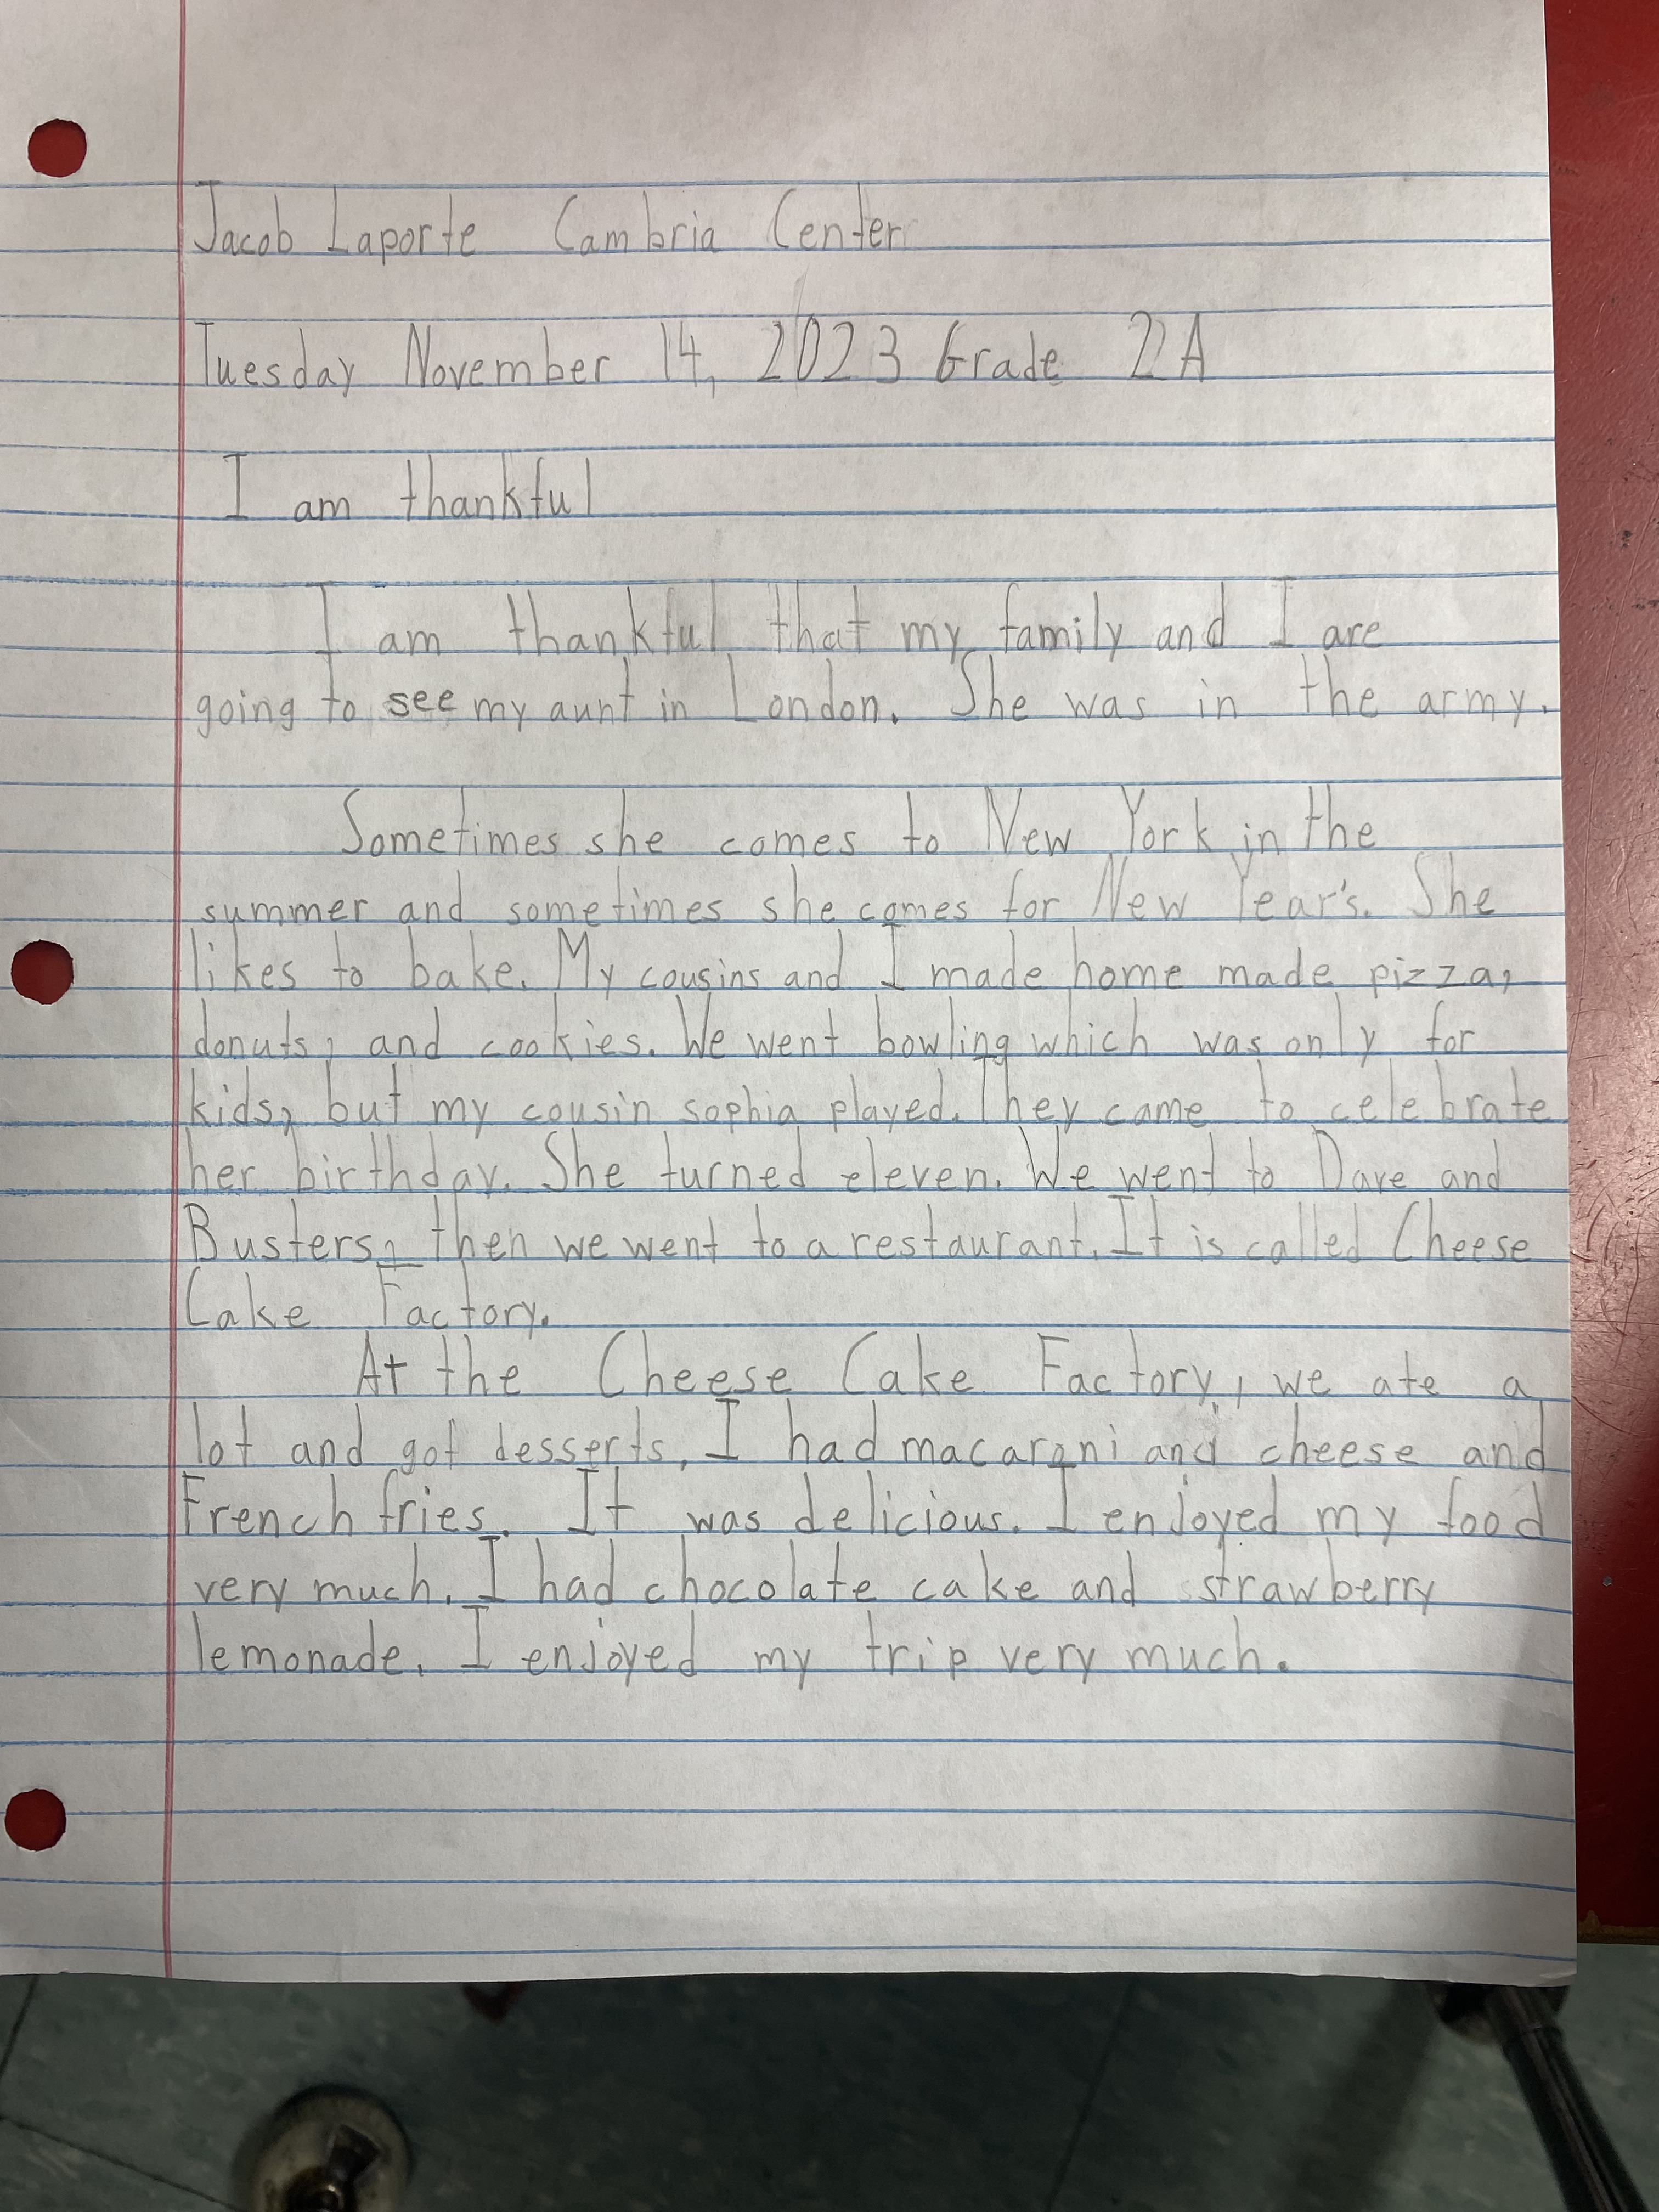 Jacob Laporte Cambria Center
Tuesday November 14, 2023 Grade 2A
I am thankful
I am thankful that my family and I are
going to see my aunt in London. She was in the army.
Sometimes she comes to New York in the
summer and sometimes she comes for New Year's. She
likes to bake. My cousins and I made home made pizza,
donuts, and cookies. We went bowling which was only for
kids, but my cousin sophia played. They came to celebrate
her birthday. She turned eleven. We went to Dave and
Busters, then we went to a restaurant. It is called Cheese
Cake Factory.
At the Cheese Cake Factory, we ate a
lot and got desserts. I had macaroni and cheese and
French fries. It was delicious. I enjoyed my food
very much. I had chocolate cake and strawberry
lemonade. I enjoyed my trip very much.